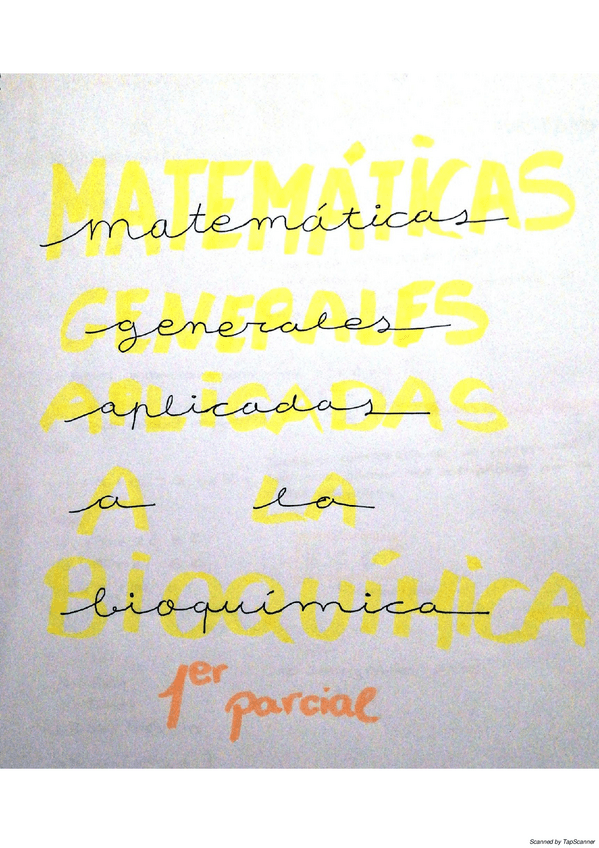 MATEMÁTICAS
matemáticas
GENERALES
generales
APLICADAS
aplicadas
A LA
a la
BIOQUÍMICA
bioquímica
1er parcial
Scanned by TapScanner